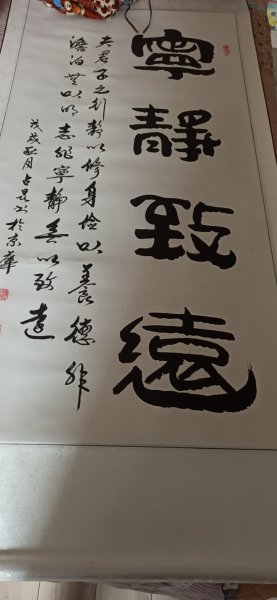 寧靜致遠
夫君子之行靜以修身儉以養德非
澹泊無以明志非寧靜無以致遠
戊戌秋月占昆书於京華